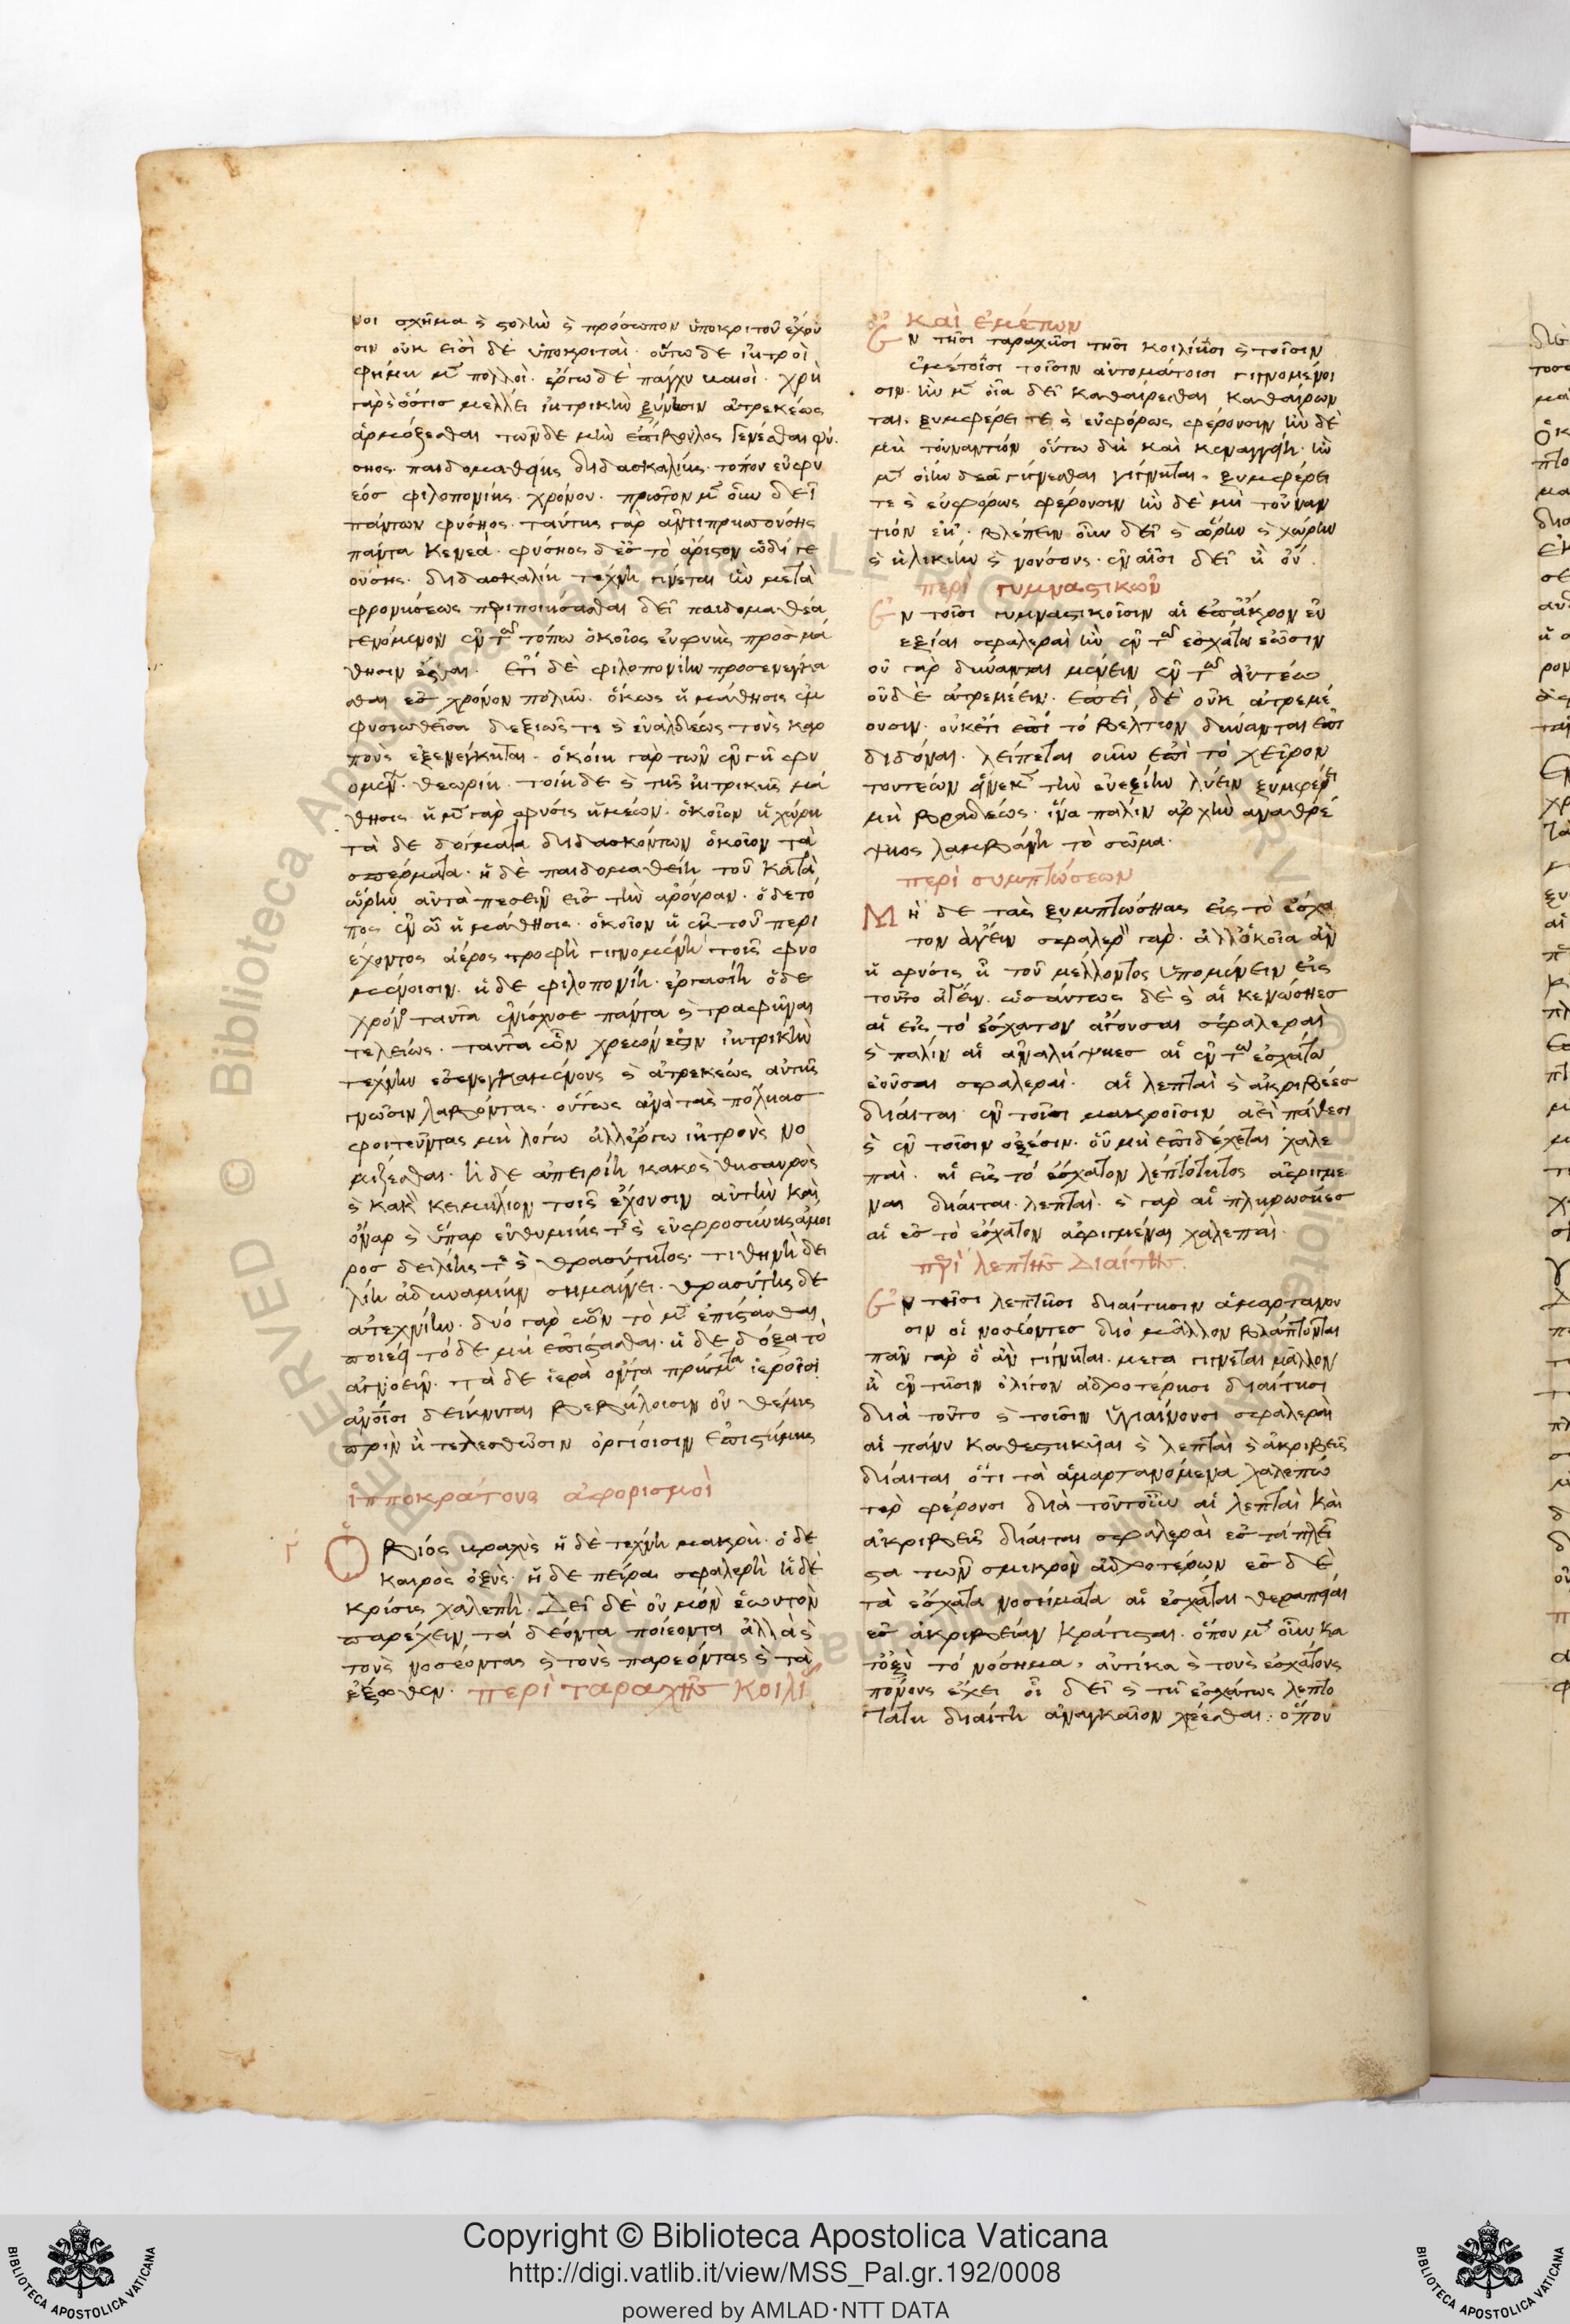 νοι σχῆμα καὶ στολὴν καὶ πρόσωπον ὑποκριτοῦ ἔχου
σιν οὐκ εἰσὶ δὲ ὑποκριταὶ· οὕτω δὲ ἰητροὶ
φήμη μὲν πολλοὶ· ἔργω δὲ πάγχυ βαιοὶ· χρὴ
γὰρ ὅστις μέλλει ἰητρικὴν ξύνεσιν ἀτρεκέως
ἁρμόζεσθαι τῶνδε μὴν ἐπίβουλος γενέσθαι φύ
σηος· παιδομαθείης διδασκαλίης· τόπου εὐφυ
έος φιλοπονίης· χρόνου· πρῶτον μὲν οὖν δεῖ
πάντων φύσηος· ταύτης γὰρ ἀντιπρηττούσης
πάντα κενεά· φύσηος δὲ ἐς τὸ ἄριστον ὡδή γε
ούσης· διδασκαλίη τέχνη γίνεται ἣν μετὰ
φρονήσεως περιποιήσασθαι δεῖ παιδομαθέα
γενόμενον ἐν τῶ τόπω ὁκοῖος εὐφυὴς πρὸς μά
θησιν ἔσται· ἔτι δὲ φιλοπονίην προσενέγκα
σθαι ἐς χρόνον πολὺν· ὅκως ἡ μάθησις ἐμ
φυσιωθεῖσα δεξιῶς τε καὶ εὐαλδέως τοὺς καρ
ποὺς ἐξενέγκηται· ὁκοίη γὰρ τῶν ἐν γῆ φυ
ομένων θεωρίη· τοιήδε καὶ τῆς ἰητρικῆς μά
θησις· ἡ μὲν γὰρ φύσις ἡμέων· ὁκοῖον ἡ χώρη
τὰ δὲ δόγματα διδασκόντων ὁκοῖον τὰ
σπέρματα· ἡ δὲ παιδομαθείη τοῦ κατὰ
ὥρην αὐτὰ πεσεῖν εἰς τὴν ἄρουραν· ὁ δὲ τό
πος ἐν ὧ ἡ μάθησις· ὁκοῖον ἡ ἐκ τοῦ περι
έχοντος ἀέρος τροφὴ γιγνομένη τοῖς φυο
μένοισιν· ἡ δὲ φιλοπονίη· ἐργασίη ὁ δὲ
χρόνος ταῦτα ἐνίσχυσε πάντα καὶ τραφῆναι
τελείως· ταῦτα ὧν χρεὼν ἐς τὴν ἰητρικὴν
τέχνην ἐσενεγκαμένους καὶ ἀτρεκέως αὐτῆς
γνῶσιν λαβόντας· οὕτως ἀνὰ τὰς πόληας
φοιτεῦντας μὴ λόγω ἀλλ' ἔργω ἰητροὺς νο
μίζεσθαι· ἡ δὲ ἀπειρίη κακὸς θησαυρὸς
καὶ κακὸν κειμήλιον τοῖς ἔχουσιν αὐτὴν καὶ
ὄναρ καὶ ὕπαρ εὐθυμίης τε καὶ εὐφροσύνης ἄμοι
ρος δειλίης τε καὶ θρασύτητος· τιθήνη δει
λίη ἀδυναμίην σημαίνει· θρασύτης δὲ
ἀτεχνίην· δύο γὰρ ὧν τὸ μὲν ἐπίστασθαι
ποιέει τὸ δὲ μὴ ἐπίστασθαι· ἡ δὲ δόξα τὸ
ἀγνοεῖν· τὰ δὲ ἱερὰ ὄντα πρήγματα ἱεροῖσι
ἀνοῖσι δείκνυται βεβήλοισιν οὐ θέμις
πρὶν ἢ τελεσθῶσιν ὀργίοισιν ἐπιστήμης
ἱπποκράτους ἀφορισμοὶ
Ὁ βίος βραχὺς ἡ δὲ τέχνη μακρὴ· ὁ δὲ
καιρὸς ὀξὺς· ἡ δὲ πεῖρα σφαλερὴ ἡ δὲ
κρίσις χαλεπὴ· Δεῖ δὲ οὐ μόνον ἑωυτὸν
παρέχειν τὰ δέοντα ποιέοντα ἀλλὰ καὶ
τοὺς νοσέοντας καὶ τοὺς παρεόντας καὶ τὰ
ἔξωθεν· περὶ ταραχῆς κοιλί
ας καὶ ἐμέτων
Ἐν τῆσι ταραχῆσι τῆσι κοιλίησι καὶ τοῖσιν
ἐμέτοισι τοῖσιν αὐτομάτοισι γιγνομένοι
σιν· ἢν μὲν οἷα δεῖ καθαίρεσθαι καθαίρων
ται· ξυμφέρει τε καὶ εὐφόρως φέρουσιν ἢν δὲ
μὴ τοὐναντίον οὕτω δὴ καὶ κεναγγείη· ἢν
μὲν οἵην δεῖ γίγνεσθαι γίγνηται· ξυμφέρει
τε καὶ εὐφόρως φέρουσιν ἢν δὲ μὴ τοὐναν
τίον ἐν· βλέπειν οὖν δεῖ καὶ ὥρην καὶ χώρην
καὶ ἡλικίην καὶ νούσους· ἐν αἷσι δεῖ ἢ οὔ·
περὶ γυμναστικῶν
Ἐν τοῖσι γυμναστικοῖσιν αἱ ἐπ' ἄκρον εὐ
εξίαι σφαλεραὶ ἢν ἐν τῶ ἐσχάτω ἐῶσιν
οὐ γὰρ δύνανται μένειν ἐν τῶ αὐτέω
οὐδὲ ἀτρεμέειν· ἐπεὶ δὲ οὐκ ἀτρεμέ
ουσιν· οὐκέτι ἐπὶ τὸ βέλτιον δύνανται ἐπι
διδόναι· λείπεται οὖν ἐπὶ τὸ χεῖρον
τουτέων εἵνεκεν τὴν εὐεξίην λύειν ξυμφέρει
μὴ βραδέως· ἵνα πάλιν ἀρχὴν ἀναθρέ
ψιος λαμβάνη τὸ σῶμα·
περὶ συμπτώσεων
Μὴ δὲ τὰς ξυμπτώσηας εἰς τὸ ἔσχα
τον ἄγειν σφαλερὸν γὰρ· ἀλλ' ὁκοῖα ἂν
ἡ φύσις ἦ τοῦ μέλλοντος ὑπομένειν εἰς
τοῦτο ἄγειν· ὡσαύτως δὲ καὶ αἱ κενώσηες
αἱ εἰς τὸ ἔσχατον ἄγουσαι σφαλεραὶ
καὶ πάλιν αἱ ἀναλήψηες αἱ ἐν τῶ ἐσχάτω
ἐοῦσαι σφαλεραὶ· αἱ λεπταὶ καὶ ἀκριβέες
δίαιται ἐν τοῖσι μακροῖσιν ἀεὶ πάθεσι
καὶ ἐν τοῖσιν ὀξέσιν· οὗ μὴ ἐπιδέχεται χαλε
παὶ· αἱ εἰς τὸ ἔσχατον λεπτότητος ἀφιγμέ
ναι δίαιται λεπταὶ· καὶ γὰρ αἱ πληρώσηες
αἱ ἐς τὸ ἔσχατον ἀφιγμέναι χαλεπαὶ·
περὶ λεπτῆς Διαίτης·
Ἐν τῆσι λεπτῆσι διαίτησιν ἁμαρτάνου
σιν οἱ νοσέοντες διὸ μᾶλλον βλάπτονται
πᾶν γὰρ ὃ ἂν γίγνηται· μέγα γίγνεται μᾶλλον
ἢ ἐν τῆσιν ὀλίγον ἁδροτέρησι διαίτησι
διὰ τοῦτο καὶ τοῖσιν ὑγιαίνουσι σφαλεραὶ
αἱ πάνυ καθεστηκυῖαι καὶ λεπταὶ καὶ ἀκριβεῖς
δίαιται ὅτι τὰ ἁμαρτανόμενα χαλεπώ
τερον φέρουσι διὰ τοῦτο οὖν αἱ λεπταὶ καὶ
ἀκριβεῖς δίαιται σφαλεραὶ ἐς τὰ πλεῖ
στα τῶν σμικρὸν ἁδροτέρων ἐς δὲ
τὰ ἔσχατα νοσήματα αἱ ἔσχαται θεραπεῖαι
ἐς ἀκριβείαν κράτισται· ὅπου μὲν οὖν κα
τοξὺ τὸ νόσημα, αὐτίκα καὶ τοὺς ἐσχάτους
πόνους ἔχει οἷ δεῖ καὶ τῆ ἐσχάτως λεπτο
τάτη διαίτη ἀναγκαῖον χρέεσθαι: ὅπου
Copyright © Biblioteca Apostolica Vaticana
http://digi.vatlib.it/view/MSS_Pal.gr.192/0008
powered by AMLAD·NTT DATA
BIBLIOTECA APOSTOLICA VATICANA
BIBLIOTECA APOSTOLICA VATICANA